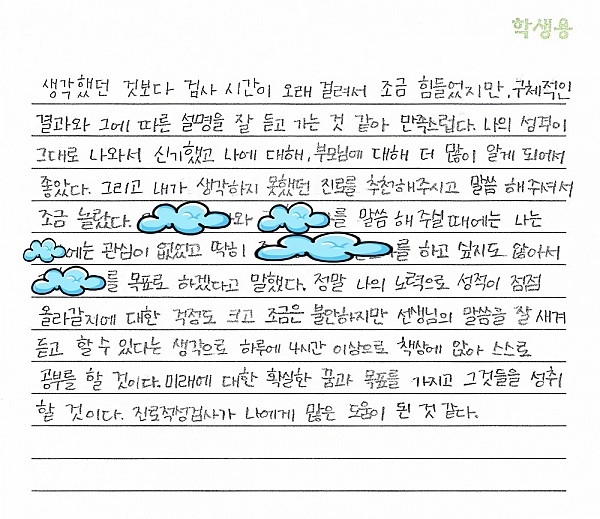 학생용
생각했던 것보다 검사 시간이 오래 걸려서 조금 힘들었지만, 구체적인
결과와 그에 따른 설명을 잘 듣고 가는 것 같아 만족스럽다. 나의 성격이
그대로 나와서 신기했고 나에 대해, 부모님에 대해 더 많이 알게 되어서
좋았다. 그리고 내가 생각하지 못했던 진로를 추천해주시고 말씀 해주셔서
조금 놀랐다. 와 를 말씀 해 주실 때에는 나는
에는 관심이 없었고 딱히 를 하고 싶지도 않아서
를 목표로 하겠다고 말했다. 정말 나의 노력으로 성적이 점점
올라갈지에 대한 걱정도 크고 조금은 불안하지만 선생님의 말씀을 잘 새겨
듣고 할 수 있다는 생각으로 하루에 4시간 이상으로 책상에 앉아 스스로
공부를 할 것이다. 미래에 대한 확실한 꿈과 목표를 가지고 그것들을 성취
할 것이다. 진로적성검사가 나에게 많은 도움이 된 것 같다.